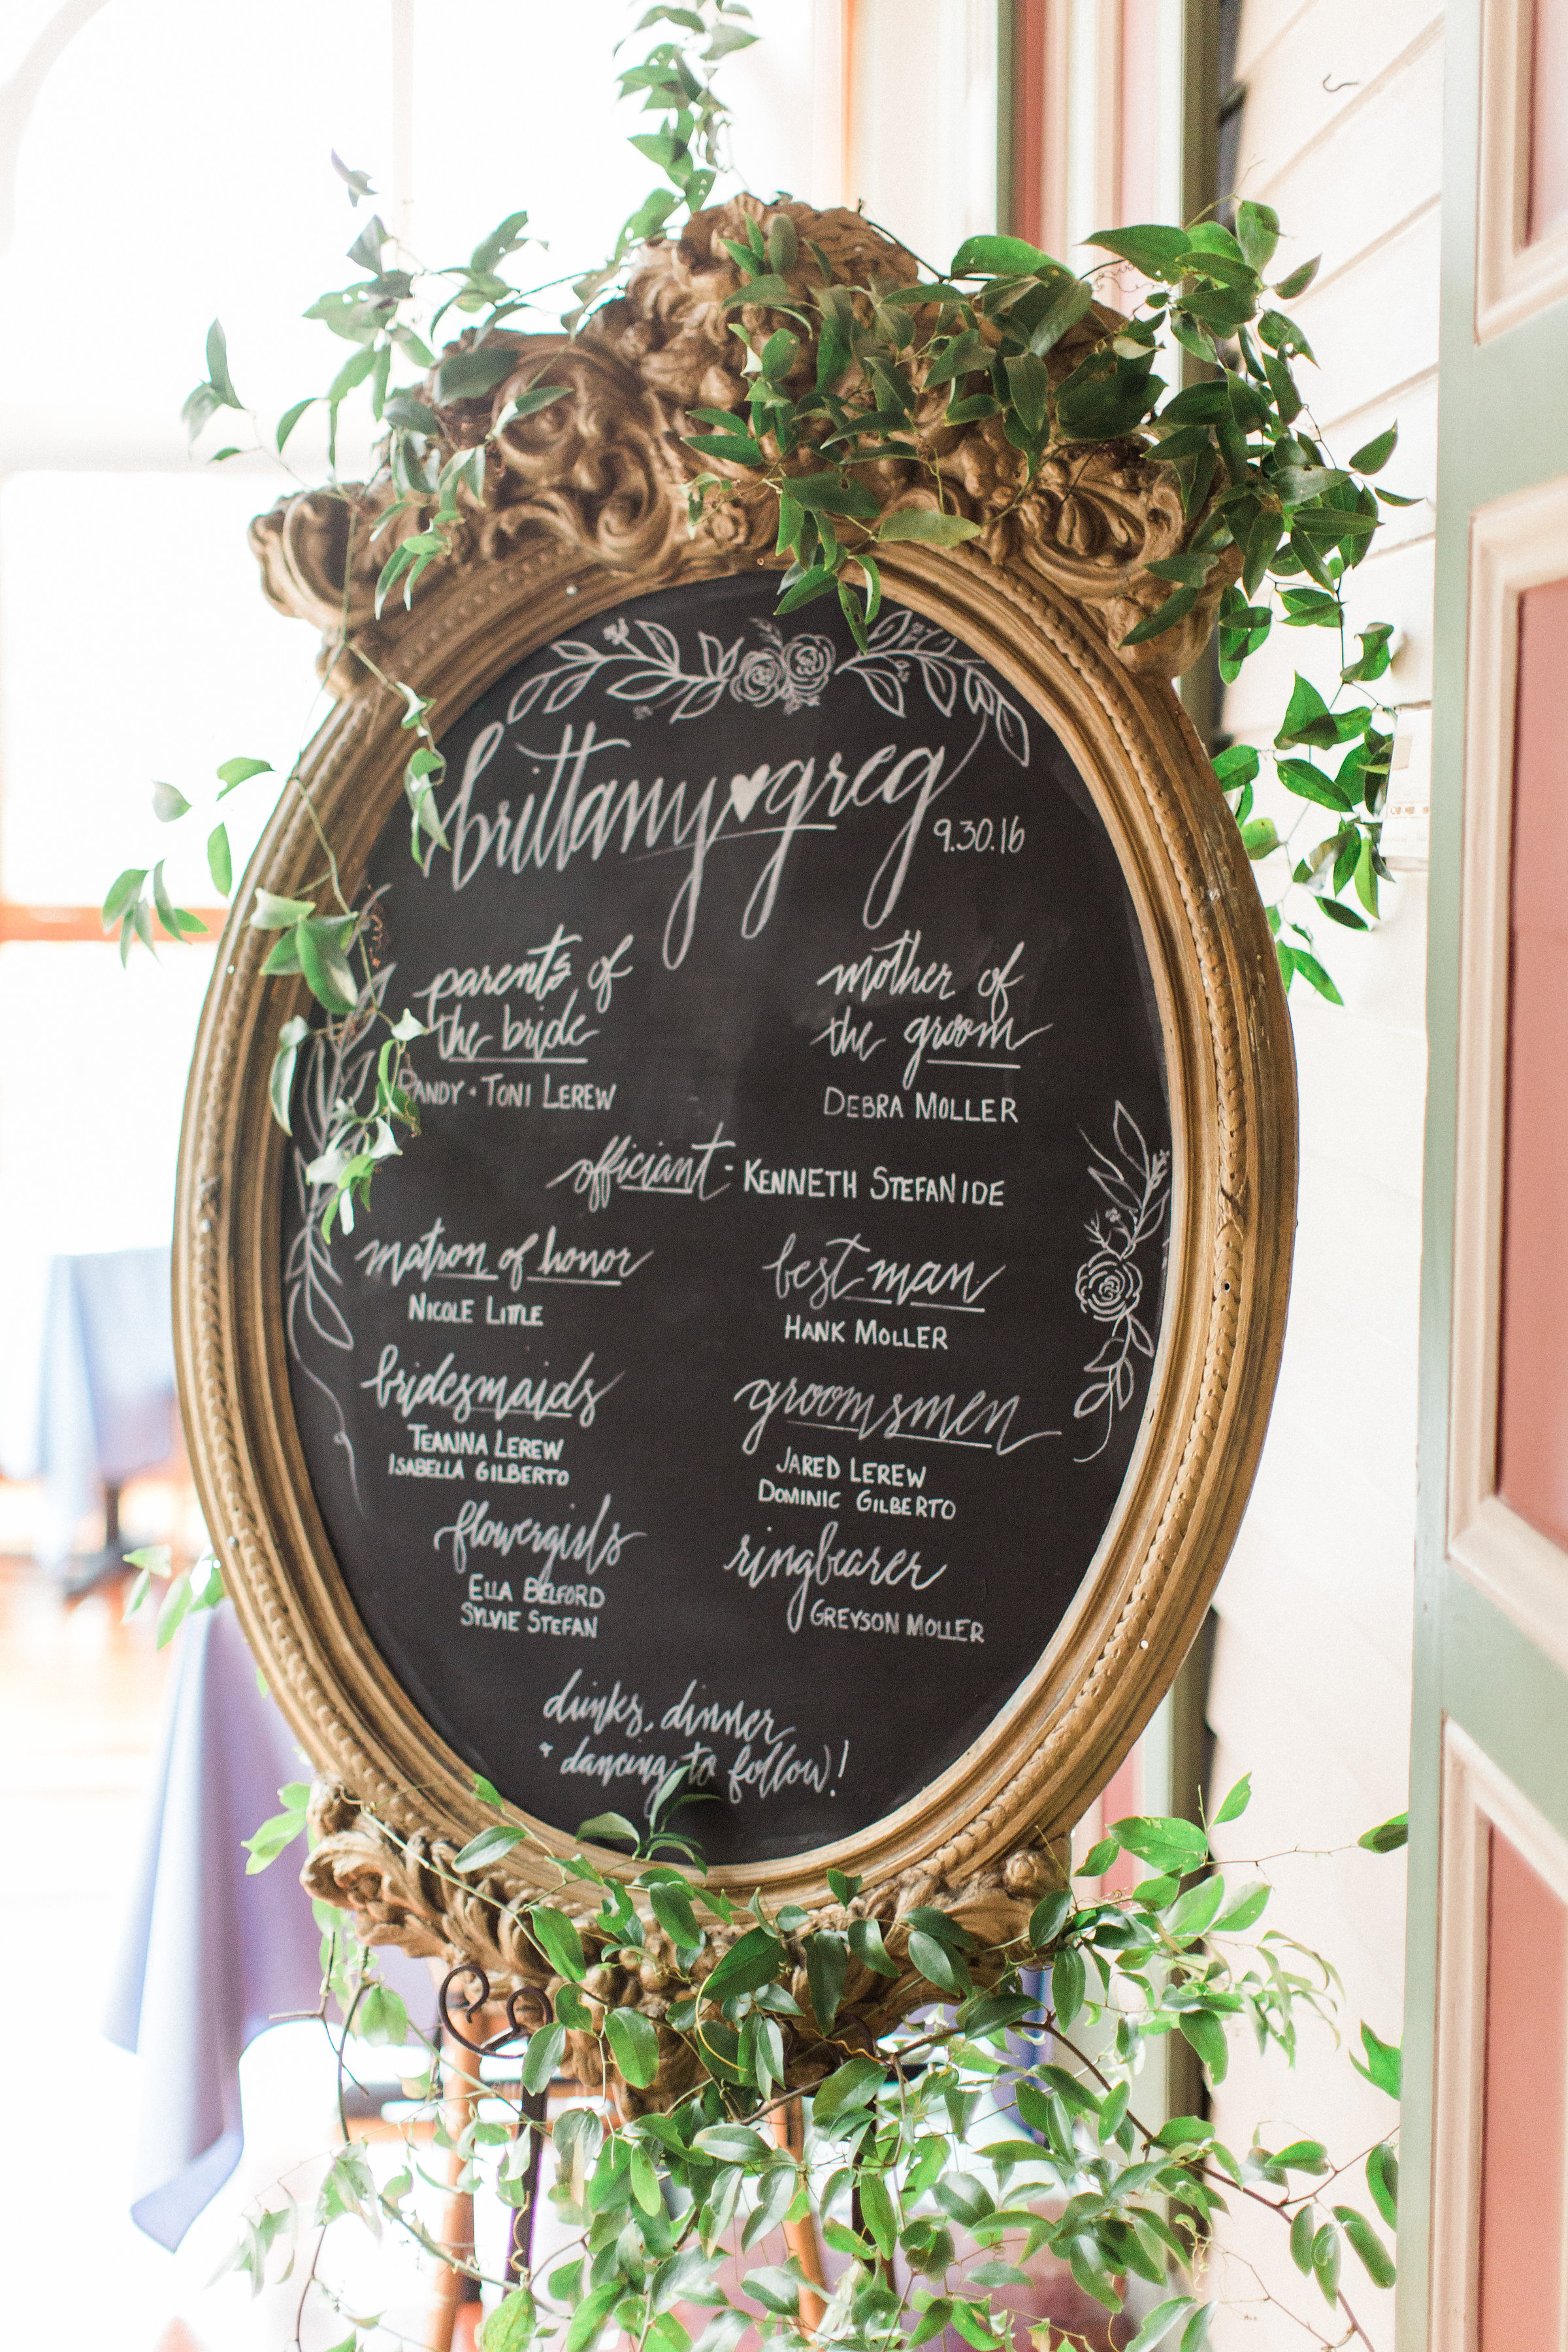 brittany ♥ greg
9.30.16
parents of
the bride
RANDY + TONI LEREW
mother of
the groom
DEBRA MOLLER
officiant - KENNETH STEFANIDE
matron of honor
NICOLE LITTLE
best man
HANK MOLLER
bridesmaids
TEANNA LEREW
ISABELLA GILBERTO
groomsmen
JARED LEREW
DOMINIC GILBERTO
flowergirls
ELLA BELFORD
SYLVIE STEFAN
ringbearer
GREYSON MOLLER
drinks, dinner
+ dancing to follow!